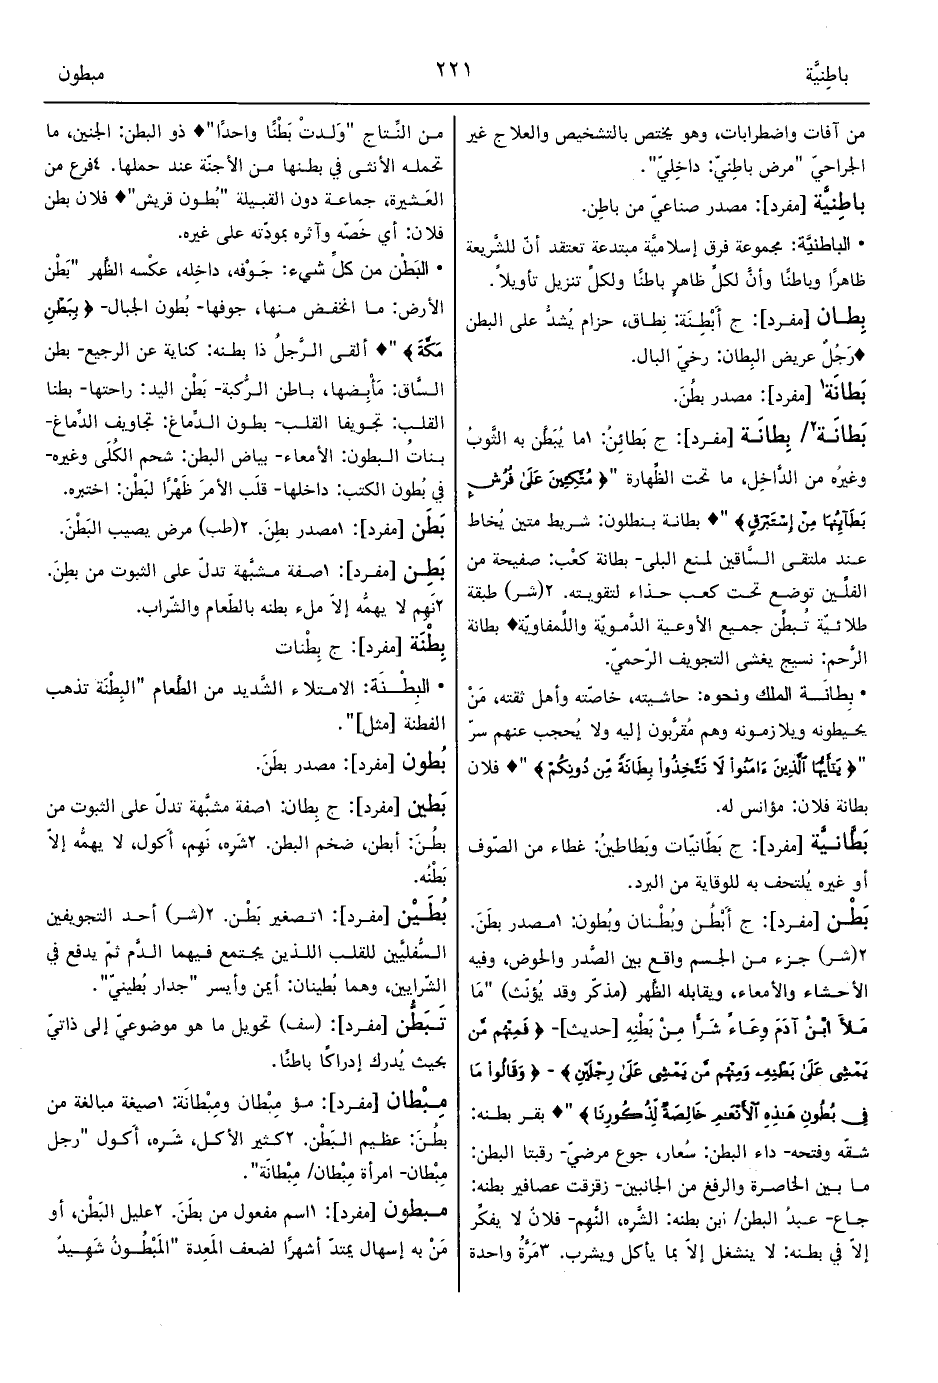 باطِنيَّة
٢٢١
مبطون
من آفات واضطرابات، وهو يختص بالتشخيص والعلاج غير
الجراحيّ "مرض باطِنيّ: داخِليّ".
باطِنيَّة [مفرد]: مصدر صناعيّ من باطِن.
• الباطنيَّة: مجموعة فرق إسلاميَّة مبتدعة تعتقد أنّ للشَّريعة
ظاهرًا وباطنًا وأنَّ لكلِّ ظاهرٍ باطنًا ولكلِّ تنزيل تأويلاً.
بِطان [مفرد]: ج أَبْطِنَة: نطاق، حزام يُشدُّ على البطن
♦رَجُلٌ عريض البِطان: رخيّ البال.
بَطانَة١ [مفرد]: مصدر بطُنَ.
بَطانَة٢/ بِطانَة [مفرد]: ج بَطائِنُ: ١ما يُبَطَّن به الثَّوبُ
وغيرُه من الدَّاخِل، ما تحت الظِّهارة "﴿ مُتَّكِـِٔينَ عَلَىٰ فُرُشٍۭ
بَطَآئِنُهَا مِنْ إِسْتَبْرَقٍ﴾ "♦ بطانة بنطلون: شريط متين يُخاط
عند ملتقى السَّاقين لمنع البلى- بطانة كعْب: صفيحة من
الفلِّين توضع تحت كعب حذاء لتقويته. ٢(شر) طبقة
طلائيَّة تُبطِّن جميع الأوعية الدَّمويَّة واللِّمفاويَّة♦ بطانة
الرَّحم: نسيج يغشى التجويف الرّحميّ.
• بِطانَة الملك ونحوه: حاشيته، خاصّته وأهل ثقته، مَنْ
يحيطونه ويلازمونه وهم مُقرَّبون إليه ولا يُحجب عنهم سرّ
"﴿ يَـٰٓأَيُّهَا ٱلَّذِينَ ءَامَنُوا۟ لَا تَتَّخِذُوا۟ بِطَانَةً مِّن دُونِكُمْ﴾ "♦ فلان
بطانة فلان: مؤانس له.
بَطَّانيَّة [مفرد]: ج بَطَّانيّات وبَطاطينُ: غطاء من الصّوف
أو غيره يُلتحف به للوقاية من البرد.
بَطْن [مفرد]: ج أَبْطُن وبُطْنان وبُطون: ١مصدر بطَنَ.
٢(شر) جزء من الجسم واقع بين الصَّدر والحوض، وفيه
الأحشاء والأمعاء، ويقابله الظَّهر (مذكّر وقد يُؤنّث) "مَا
مَلأَ ابْنُ آدَمَ وِعَاءً شَرًّا مِنْ بَطْنِهِ [حديث]- ﴿ فَمِنْهُم مَّن
يَمْشِى عَلَىٰ بَطْنِهِۦ وَمِنْهُم مَّن يَمْشِى عَلَىٰ رِجْلَيْنِ﴾ - ﴿ وَقَالُوا۟ مَا
فِى بُطُونِ هَـٰذِهِ ٱلْأَنْعَـٰمِ خَالِصَةٌ لِّذُكُورِنَا﴾ "♦ بقر بطنه:
شقّه وفتحه- داء البطن: سُعار، جوع مرضيّ- رقبتا البطن:
ما بين الخاصرة والرفغ من الجانبين- زقزقت عصافير بطنه:
جاع- عبدُ البطن/ ابن بطنه: الشَّرِه، النَّهِم- فلانٌ لا يفكِّر
إلاّ في بطنه: لا ينشغل إلاّ بما يأكل ويشرب. ٣مَرَّةٌ واحدة
من النِّتاج "وَلدتْ بَطْنًا واحدًا"♦ ذو البطن: الجنين، ما
تحمله الأنثى في بطنها من الأجنّة عند حملها. ٤فرع من
العَشيرة، جماعة دون القبيلة "بُطون قريش"♦ فلان بطن
فلان: أي خَصّه وآثره بمودّته على غيره.
• البَطْن من كلِّ شيء: جَوْفه، داخِله، عكسه الظَّهر "بَطْن
الأرض: ما انخفض منها، جوفها- بُطون الجبال- ﴿ بِبَطْنِ
مَكَّةَ﴾ "♦ ألقى الرَّجلُ ذا بطنه: كناية عن الرجيع- بطن
السَّاق: مَأْبِضها، باطن الرُّكبة- بَطْن اليد: راحتها- بطنا
القلب: تجويفا القلب- بطون الدِّماغ: تجاويف الدِّماغ-
بناتُ البطون: الأمعاء- بياض البطن: شحم الكُلَى وغيره-
في بُطون الكتب: داخلها- قلَب الأمرَ ظَهْرًا لبَطْن: اختبره.
بَطَن [مفرد]: ١مصدر بطِنَ. ٢(طب) مرض يصيب البَطْنَ.
بَطِن [مفرد]: ١صفة مشبَّهة تدلّ على الثبوت من بطِنَ.
٢نَهِم لا يهمُّه إلاّ ملء بطنه بالطّعام والشّراب.
بِطْنَة [مفرد]: ج بِطْنات
• البِطْنَة: الامتلاء الشَّديد من الطّعام "البِطْنَة تذهب
الفطنة [مثل]".
بُطون [مفرد]: مصدر بطَنَ.
بَطين [مفرد]: ج بِطان: ١صفة مشبَّهة تدلّ على الثبوت من
بطُنَ: أبطن، ضخم البطن. ٢شَرِه، نَهِم، أكول، لا يهمُّه إلاّ
بَطْنُه.
بُطَيْن [مفرد]: ١تصغير بَطْن. ٢(شر) أحد التجويفين
السُّفليَّين للقلب اللذين يجتمع فيهما الدَّم ثمّ يدفع في
الشّرايين، وهما بُطينان: أيمن وأيسر "جدار بُطينيّ".
تَبَطُّن [مفرد]: (سف) تحويل ما هو موضوعيّ إلى ذاتيّ
بحيث يُدرك إدراكًا باطنًا.
مِبْطان [مفرد]: مؤ مِبْطان ومِبْطانَة: ١صيغة مبالغة من
بطُنَ: عظيم البَطْن. ٢كثير الأكل، شَرِه، أكول "رجل
مِبْطان- امرأة مِبْطان/ مِبْطانَة".
مبطون [مفرد]: ١اسم مفعول من بطَنَ. ٢عليل البَطْن، أو
مَنْ به إسهال يمتدّ أشهرًا لضعف المَعِدة "المَبْطُونُ شَهِيدٌ